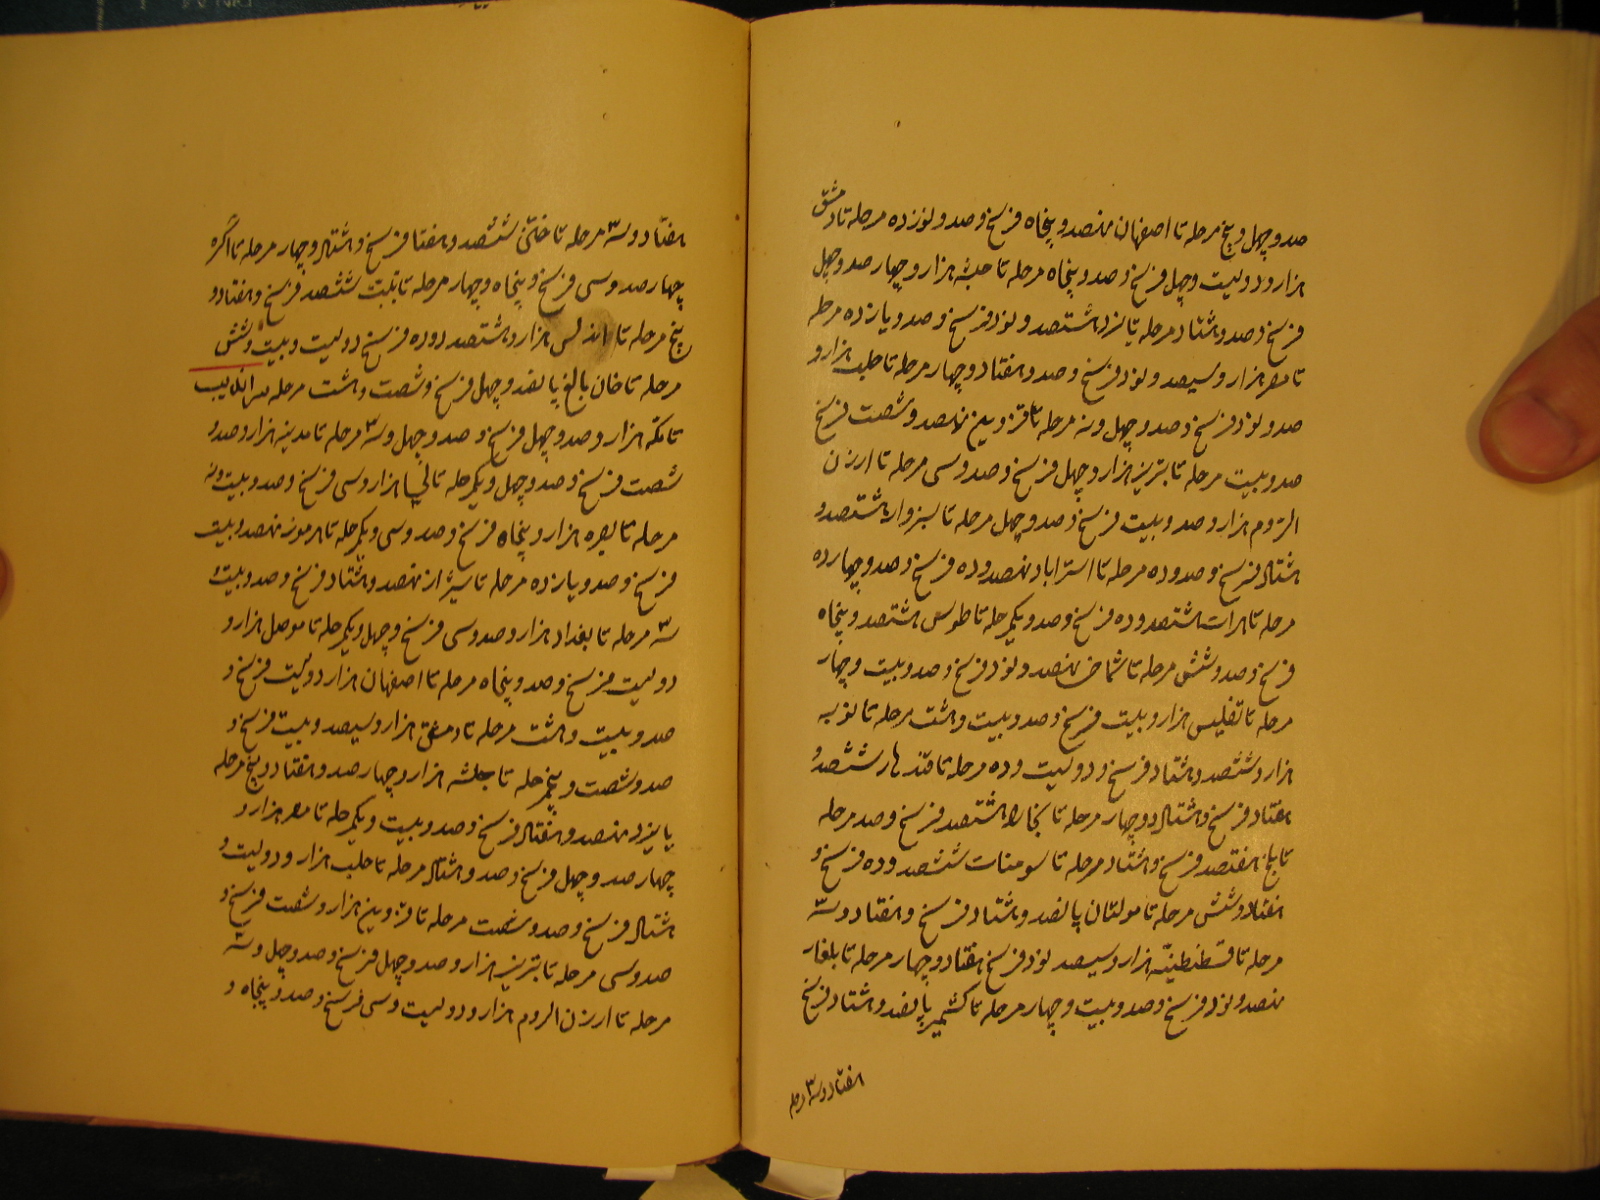 صد و چهل و پنج مرحله تا اصفهان نهصد و پنجاه فرسخ و صد و نوزده مرحله تا دمشق
هزار و دویست و چهل فرسخ و صد و پنجاه مرحله تا حبشه هزار و چهار صد و چهل
فرسخ و صد و هشتاد مرحله تا یزد هشتصد و نود فرسخ و صد و یازده مرحله
تا مصر هزار و سیصد و نود فرسخ و صد و هفتاد و چهار مرحله تا حلب هزار و
صد و نود فرسخ و صد و چهل و نه مرحله تا قزوین نهصد و شصت فرسخ
صد و بیست مرحله تا تبریز هزار و چهل فرسخ و صد و سی مرحله تا ارزن
الروم هزار و صد و بیست فرسخ و صد و چهل مرحله تا سبزوار هشتصد و
هشتاد فرسخ و صد و ده مرحله تا استراباد نهصد و ده فرسخ و صد و چهارده
مرحله تا هرات هشتصد و ده فرسخ و صد و یکمرحله تا طوس هشتصد و پنجاه
فرسخ و صد و شش مرحله تا شماخی نهصد و نود فرسخ و صد و بیست و چهار
مرحله تا تفلیس هزار و بیست فرسخ و صد و بیست و هشت مرحله تا نوبه
هزار و ششصد و هشتاد فرسخ و دویست و ده مرحله تا قندهار ششصد و
هفتاد فرسخ و هشتاد و چهار مرحله تا بخارا هشتصد فرسخ و صد مرحله
تا بلخ هفتصد فرسخ و هشتاد مرحله تا سومنات ششصد و ده فرسخ و
هفتاد و شش مرحله تا مولتان پانصد و هشتاد فرسخ و هفتاد و سه
مرحله تا قسطنطنیّه هزار و سیصد نود فرسخ هفتاد و چهار مرحله تا بلغار
نهصد و نود فرسخ و صد و بیست و چهار مرحله تا کشمیر پانصد و هشتاد فرسخ
هفتاد و سه مرحله
هفتاد و سه مرحله تا ختن ششصد و هفتا فرسخ و هشتاد و چهار مرحله تا اگره
چهار صد و سی فرسخ و پنجاه و چهار مرحله تا تبت ششصد فرسخ و هفتاد و
پنج مرحله تا اندلس هزار و هشتصد و ده فرسخ دویست و بیست و شش
مرحله تا خان بالغ پانصد و چهل فرسخ و شصت و هشت مرحله سراندیب
تا مکه هزار و صد و چهل فرسخ و صد و چهل و سه مرحله تا مدینه هزار و صد و
شصت فرسخ و صد و چهل و یکمرحله تا هزار و سی فرسخ و صد و بیست و نه
مرحله تا بصره هزار و پنجاه فرسخ و صد و سی و یکمرحله تا هرموز نهصد و بیست
فرسخ و صد و یازده مرحله تا شیراز نهصد و هشتاد فرسخ و صد و بیست و
سه مرحله تا بغداد هزار و صد و سی فرسخ و چهل و یکمرحله تا موصل هزار و
دویست فرسخ و صد و پنجاه مرحله تا اصفهان هزار دویست فرسخ و
صد و بیست و هشت مرحله تا دمشق هزار و سیصد و بیست فرسخ و
صد و شصت و پنجمرحله تا حبشه هزار و چهار صد و هفتاد و پنج مرحله
یا یزد نهصد و هفتاد فرسخ و صد و بیست و یکمرحله تا مصر هزار و
چهار صد و چهل فرسخ و صد و هشتاد مرحله تا حلب هزار و دویست و
هشتاد فرسخ و صد و شصت مرحله تا قزوین هزار و شصت فرسخ و
صد و سی مرحله تا تبریز هزار و صد و چهل فرسخ و صد و چهل و سه
مرحله تا ارزن الروم هزار و دویست و سی فرسخ و صد و پنجاه و